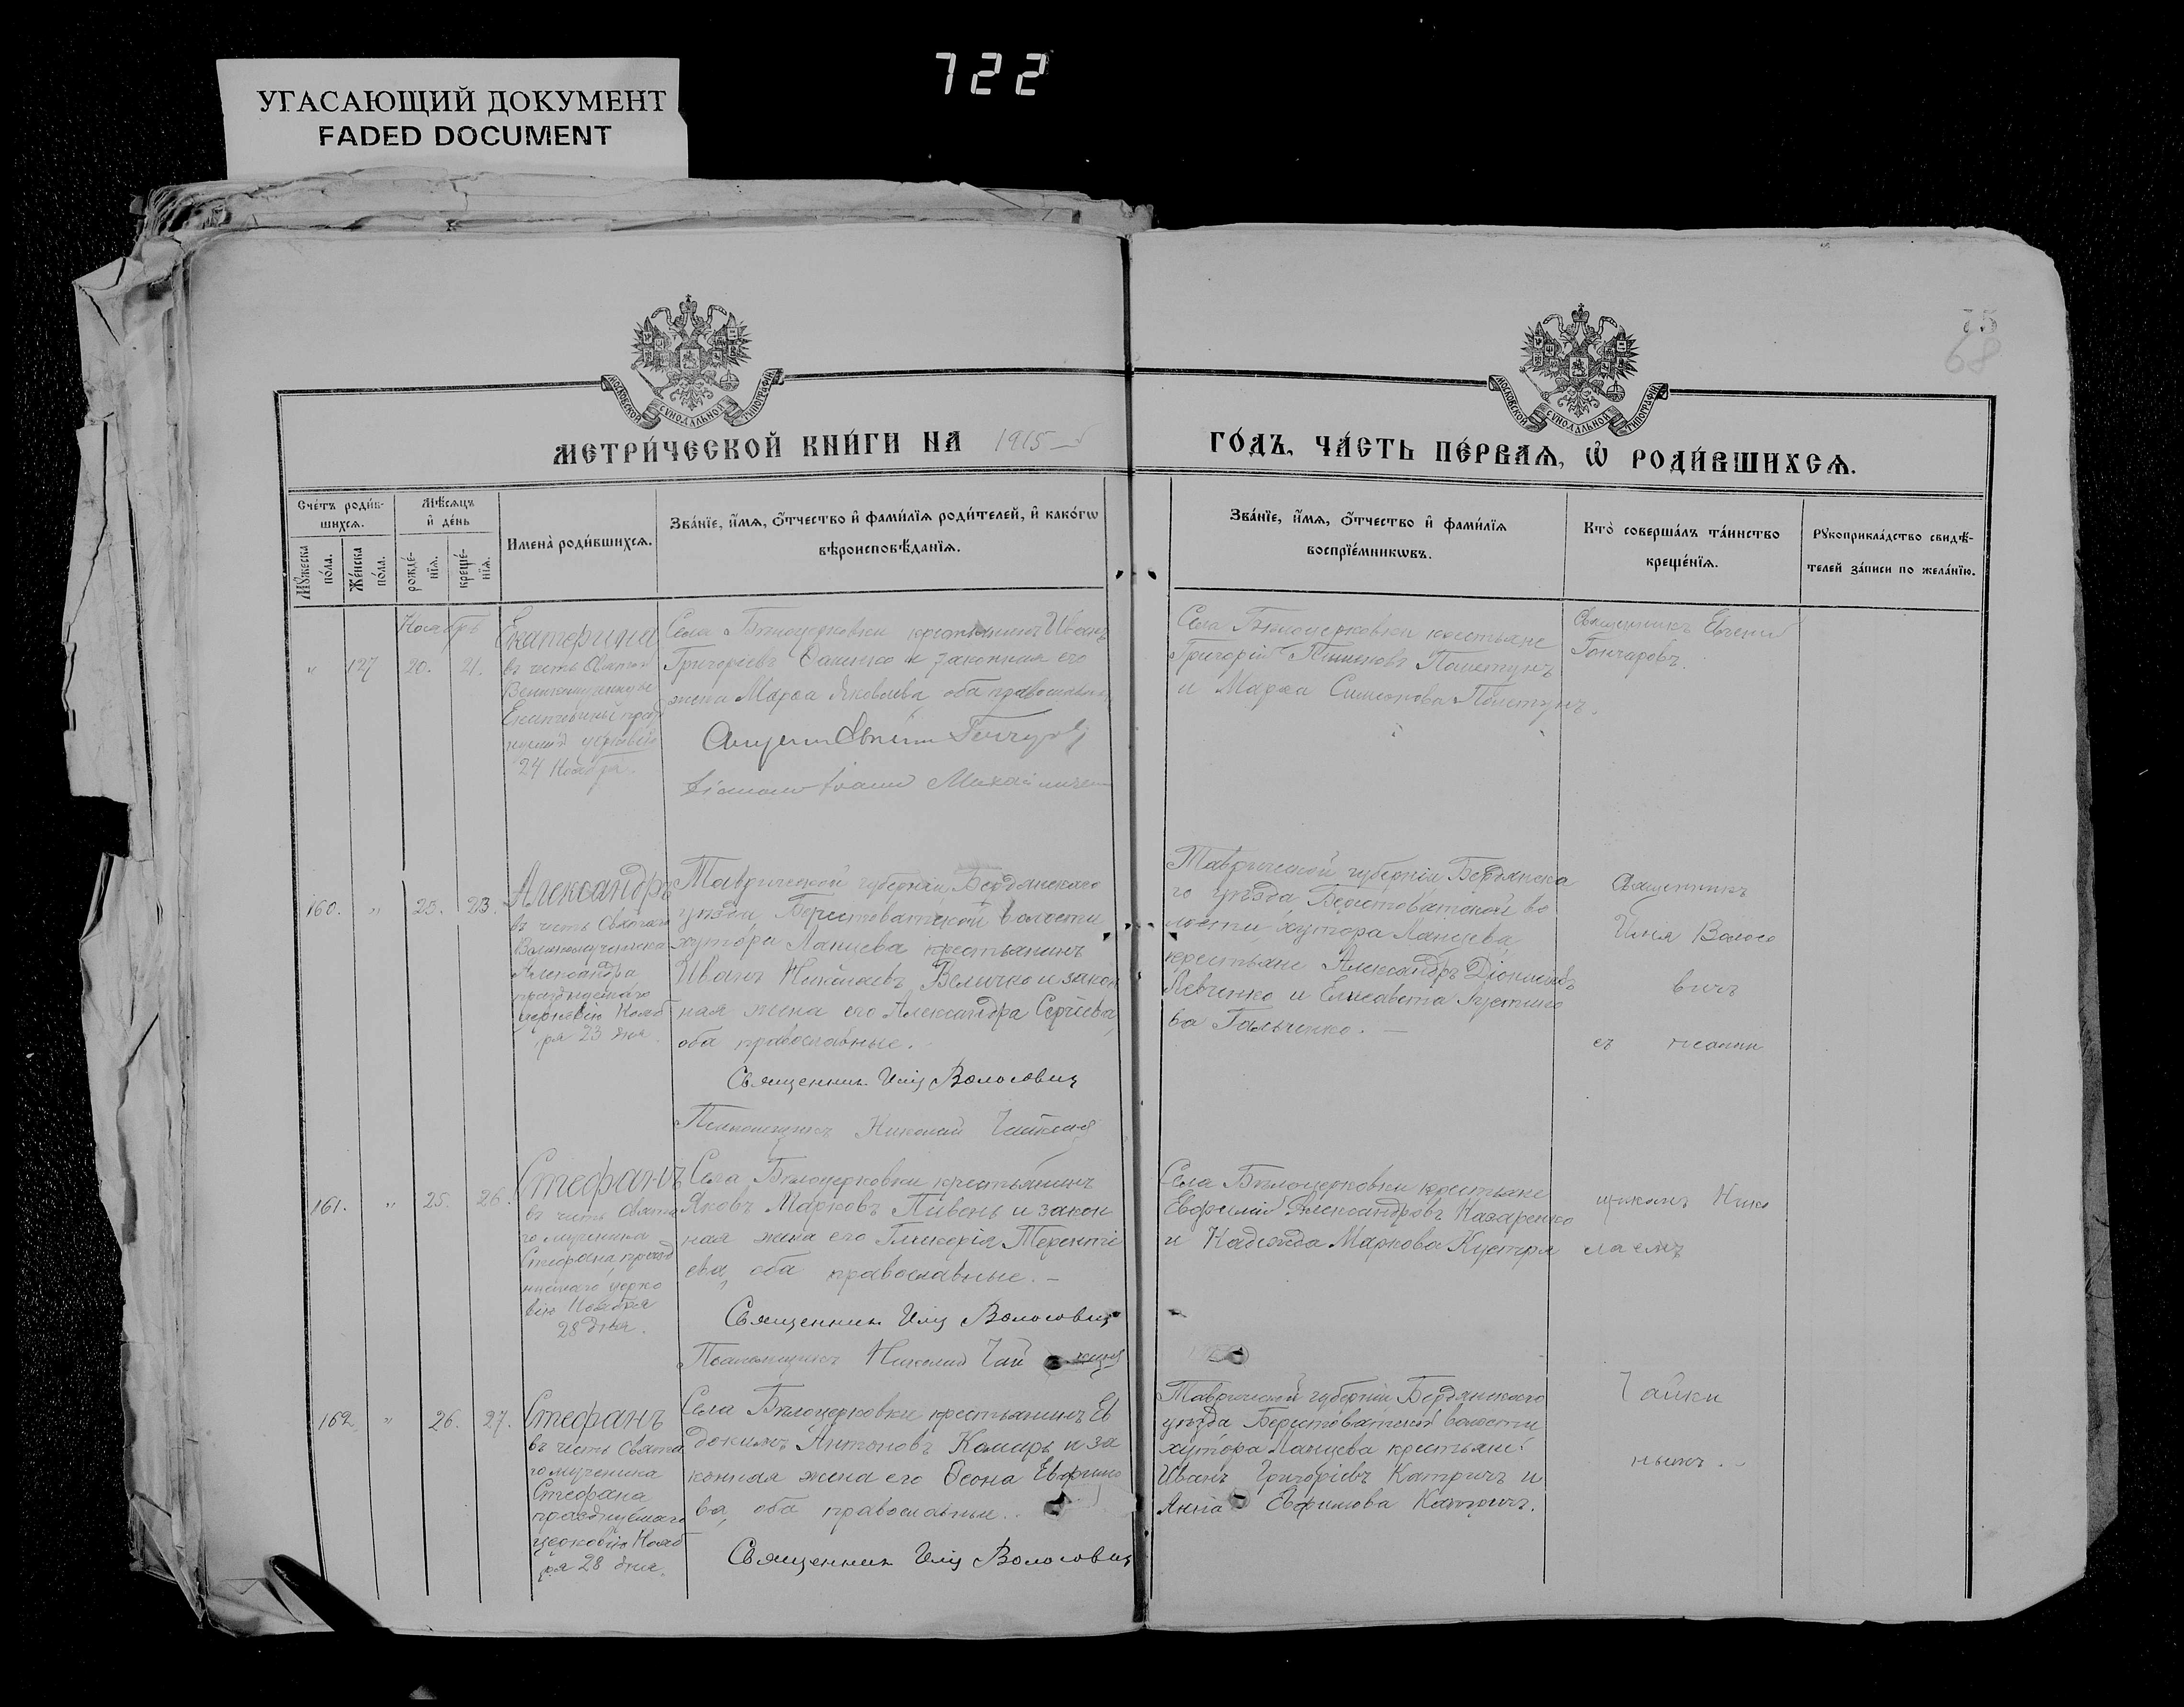 722
УГАСАЮЩИЙ ДОКУМЕНТ
FADED DOCUMENT
75
68
МОСКОВСКОЙ СѴНОДАЛЬНОЙ ТИПОГРАФІИ
МОСКОВСКОЙ СѴНОДАЛЬНОЙ ТИПОГРАФІИ
МЕТРИ́ЧЕСКОЙ КНИ́ГИ НА 1915
ГО́ДЪ, ЧА́СТЬ ПЕ́РВАѦ, Ѽ РОДИ́ВШИХСѦ.
Сче́тъ роди́в-
шихсѧ.
Мꙋ́жеска по́ла.
Же́нска по́ла.
Мѣ́сѧцъ
и҆ де́нь
рожде́-
нїѧ.
креще́-
нїѧ.
Имена̀ роди́вшихсѧ.
Зва́нїе, и҆́мѧ, ѻ҆́тчество и҆ фами́лїѧ роди́телей, и҆ како́гѡ
вѣроисповѣ́данїѧ.
Зва́нїе, и҆́мѧ, ѻ҆́тчество и҆ фами́лїѧ
воспрїе́мникѡвъ.
Кто̀ соверша́лъ та́инство
креще́нїѧ.
Рꙋкоприкла́дство свидѣ́-
телей за́писи по жела́нїю.
Ноябрь
" 127 20. 21.
Екатерина
въ честь Святой
Великомученицы
Екатерины
24 Ноября.
Села Бѣлоцерковки крестьянинъ Иванъ
Григоріевъ и законная его
жена Марѳа Яковлева оба православные
Михайличенко
Села Бѣлоцерковки крестьяне
Григорій Полетунъ
и Марѳа Симеонова Полетунъ.
Священникъ Евгеній
Гончаровъ.
160. " 23. 23.
Александръ
въ честь Святаго
Великомученика
Александра
празднуемаго
церковію Нояб
ря 23 дня
Таврической губерніи Бердянскаго
уѣзда Берестоватской волости
хутора Ланцева крестьянинъ
Иванъ Николаевъ Величко и закон
ная жена его Александра Сергіева,
оба православные.
Священникъ Илія Волосовичъ
Псаломщикъ Николай Чайкинъ
Таврической губерніи Бердянска
го уѣзда Берестоватской во
лости, хутора Ланцева,
крестьяне Александръ Діонисіевъ
Левченко и Елисавета Іустино
ва Гальченко. —
Священникъ
Илія Волосо
вичъ
съ псалом
161. " 25. 26.
Стефанъ
въ честь Свята
го мученика
Стефана празд
нуемаго церко
вію Ноября
28 дня.
Села Бѣлоцерковки крестьянинъ
Яковъ Марковъ Пивень и закон
ная жена его Гликерія Теренті
ева, оба православные. —
Священникъ Илія Волосовичъ
Псаломщикъ Николай Чайкинъ
Села Бѣлоцерковки крестьяне
Евфимій Александровъ Назаренко
и Надежда Маркова Кустря
щикомъ Нико
лаемъ
162. " 26. 27.
Стефанъ
въ честь Свята
го мученика
Стефана
празднуемаго
церковію Нояб
ря 28 дня.
Села Бѣлоцерковки крестьянинъ Ев
докимъ Антоновъ Комаръ и за
конная жена его Ѳеона Евфимо
ва, оба православные.
Священникъ Илія Волосовичъ
Таврической губерніи Бердянскаго
уѣзда Берестоватской волости
хутора Ланцева крестьяне:
Иванъ Григоріевъ Катричъ и
Анна Евфимова Катричъ.
Чайки
нымъ.